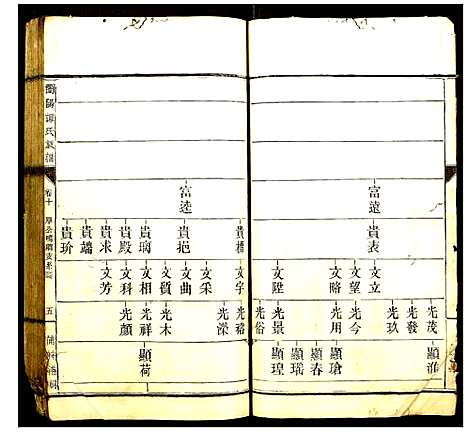 富遠
貴表
文立
文望
文略
文陞
光茂
光發
光玖
光今
光用
光景
光俗
顯淮
顯瑲
顯春
顯瑤
顯瑝
富逵
貴
貴挹
貴瑀
貴殿
貴求
貴端
貴玠
文字
文采
文曲
文質
文相
文科
文芳
光裕
光濚
光木
光祥
光顏
顯荷
瀏陽譚氏族譜
卷十
五